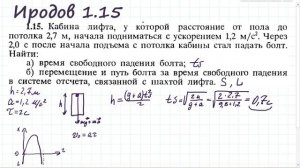 Иродов 1.15
1.15. Кабина лифта, у которой расстояние от пола до
потолка 2,7 м, начала подниматься с ускорением 1,2 м/с². Через
2,0 с после начала подъема с потолка кабины стал падать болт.
Найти:
а) время свободного падения болта; tδ
б) перемещение и путь болта за время свободного падения
в системе отсчета, связанной с шахтой лифта. S, L
h = 2,7 м
a = 1,2 м/с²
τ = 2 с
h
h = (g+a)tδ²/2
tδ = √2h/(g+a) = √2·2,7/(9,8+1,2) = 0,7с
v₀ = aτ